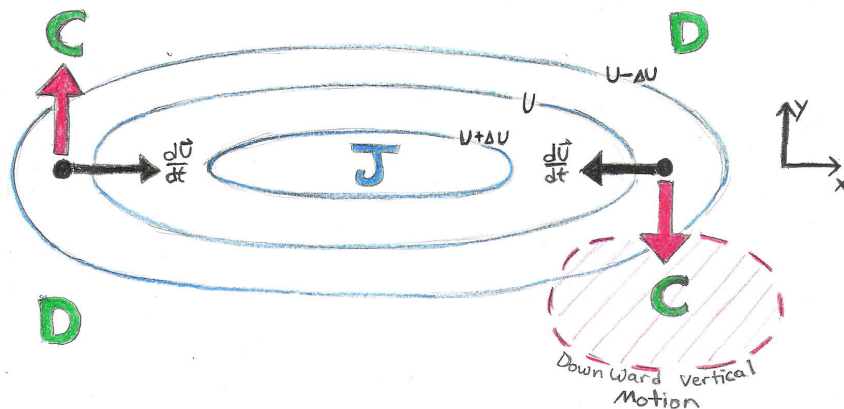 C
D
U-ΔU
U
U+ΔU
y
x
dU⃗
dt
J
dU⃗
dt
C
D
Downward vertical
Motion